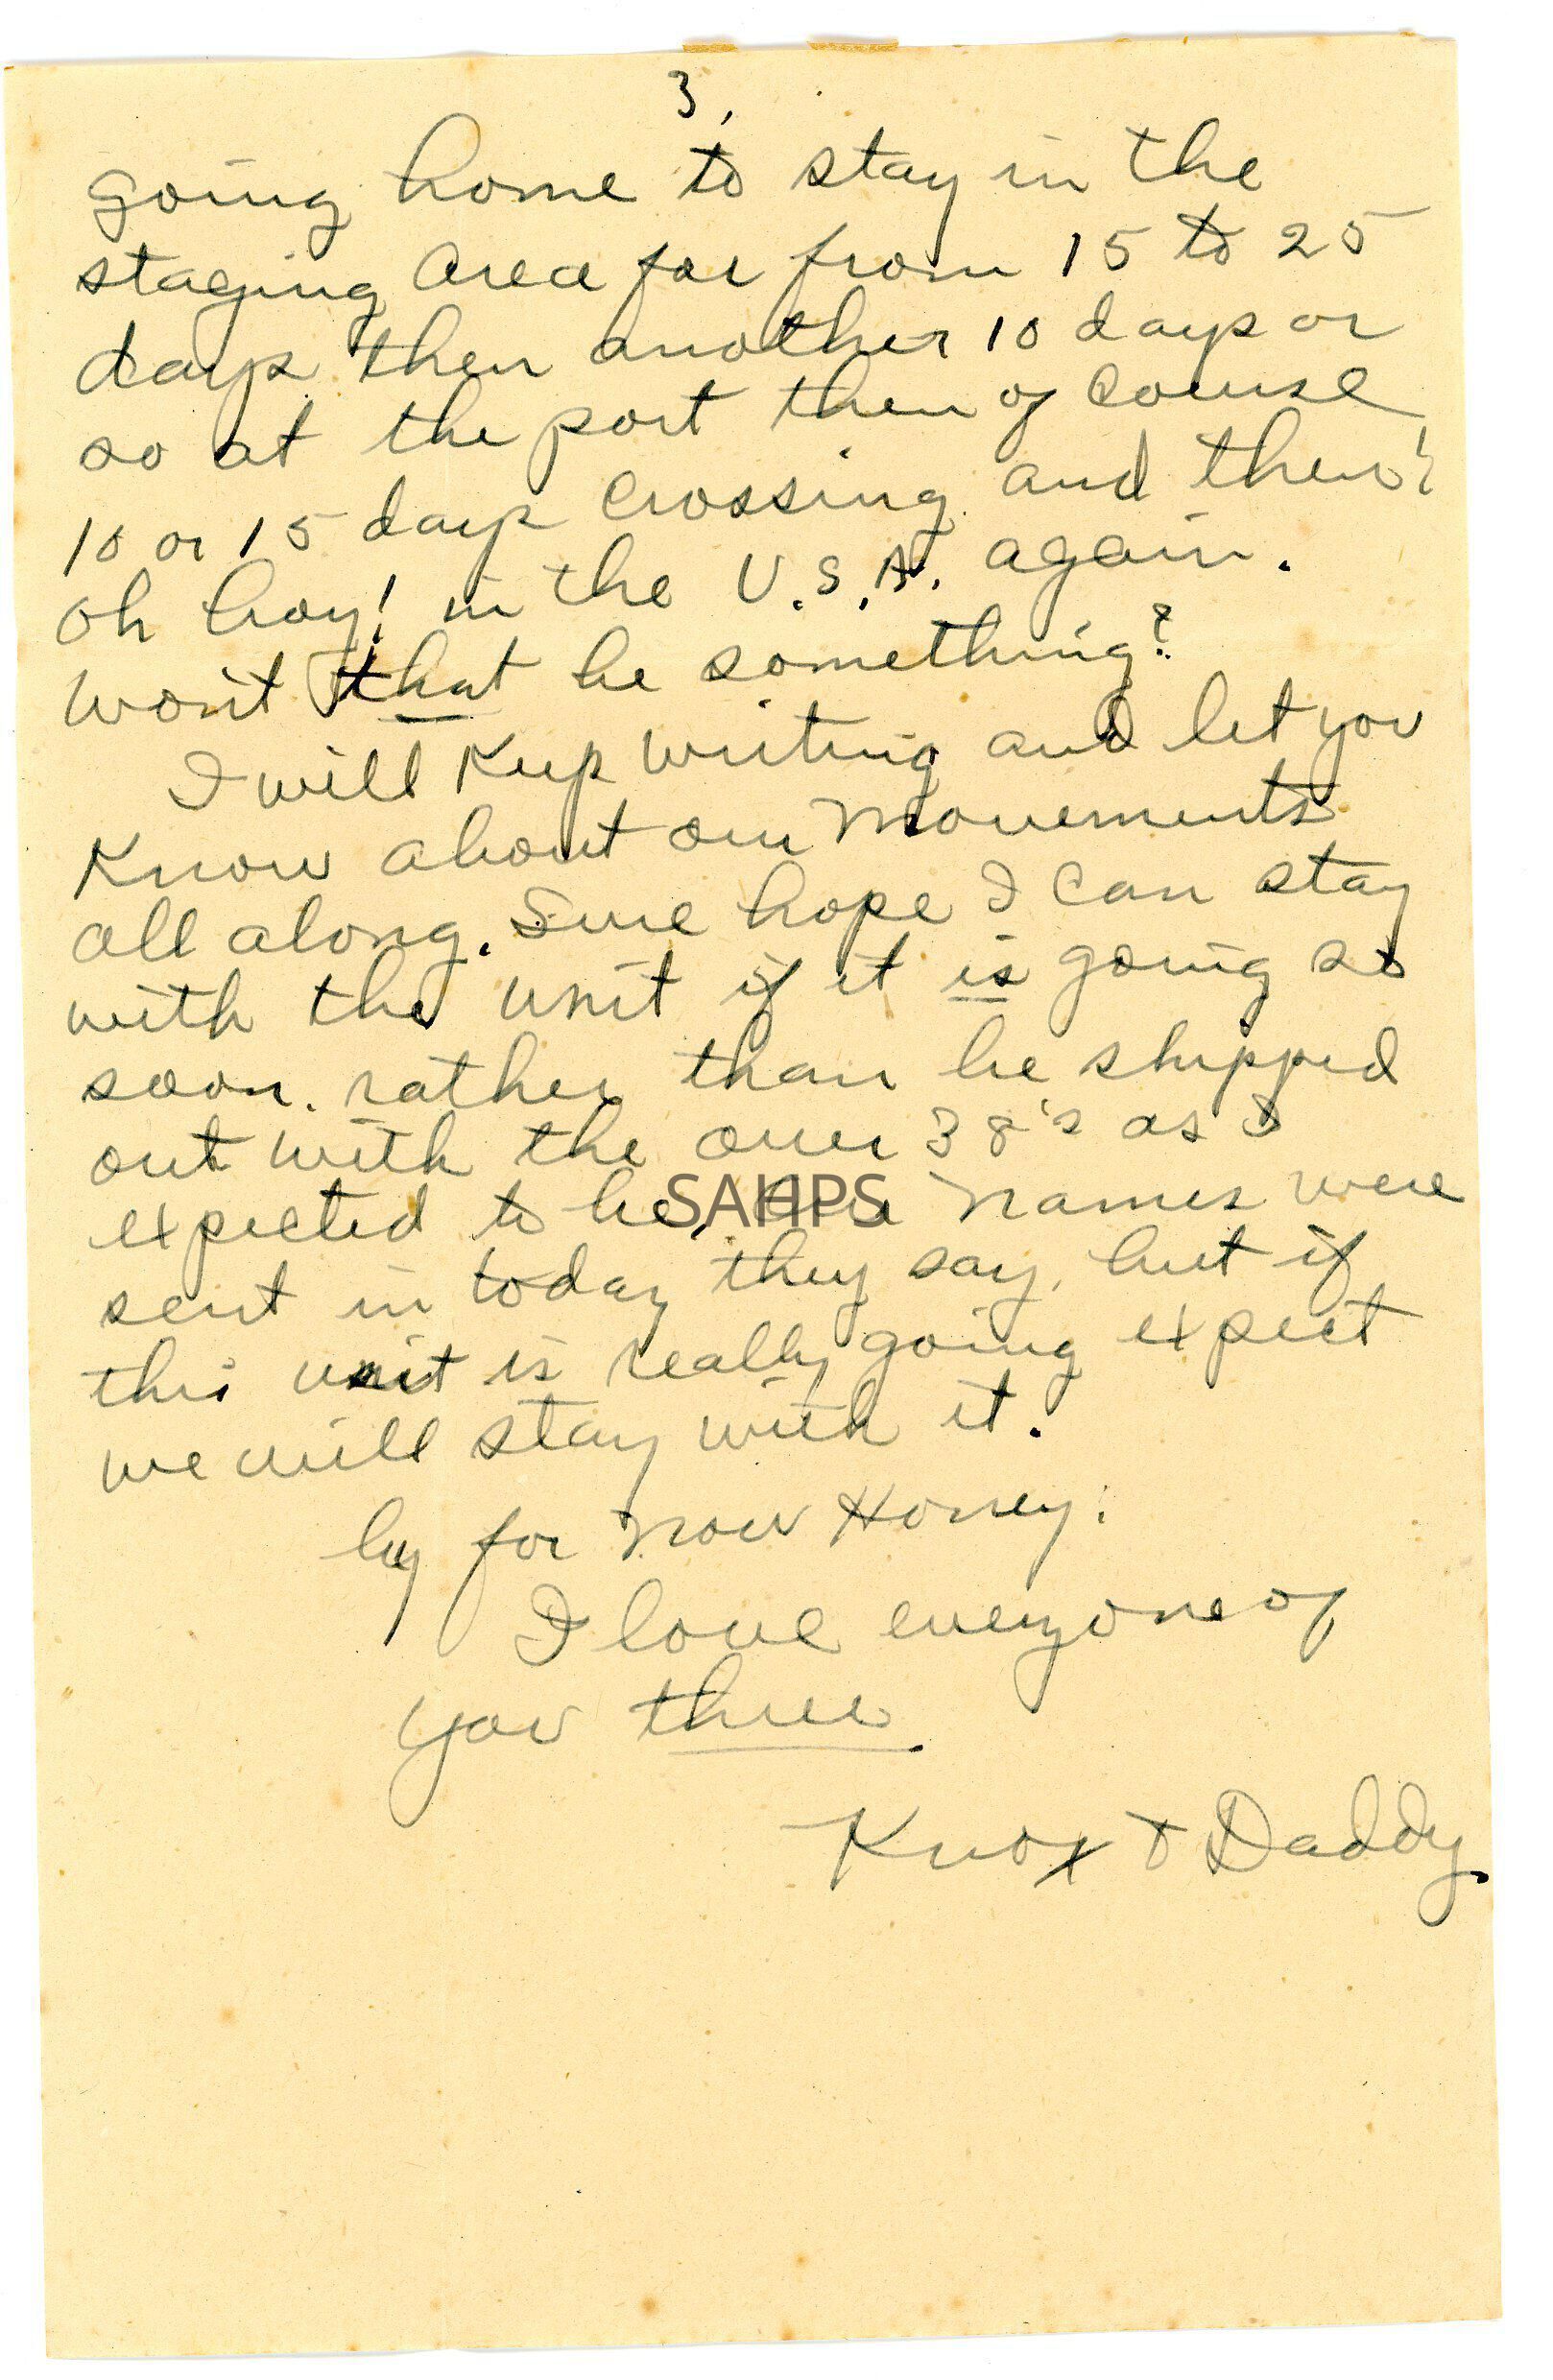 3,
going home to stay in the
staging area for from 15 to 25
days then another 10 days or
so at the port then of course
10 or 15 days crossing and then!
Oh boy! in the U.S.A. again.
Won't that be something?
I will keep writing and let you
know about our movements
all along. Sure hope I can stay
with the unit if it is going so
soon. rather than be shipped
out with the over 38's as I
expected to be, Our names were
SAHPS
sent in today they say, but if
this unit is really going expect
we will stay with it.
by for now Honey.
I love everyone of
you three.
Knox & Daddy